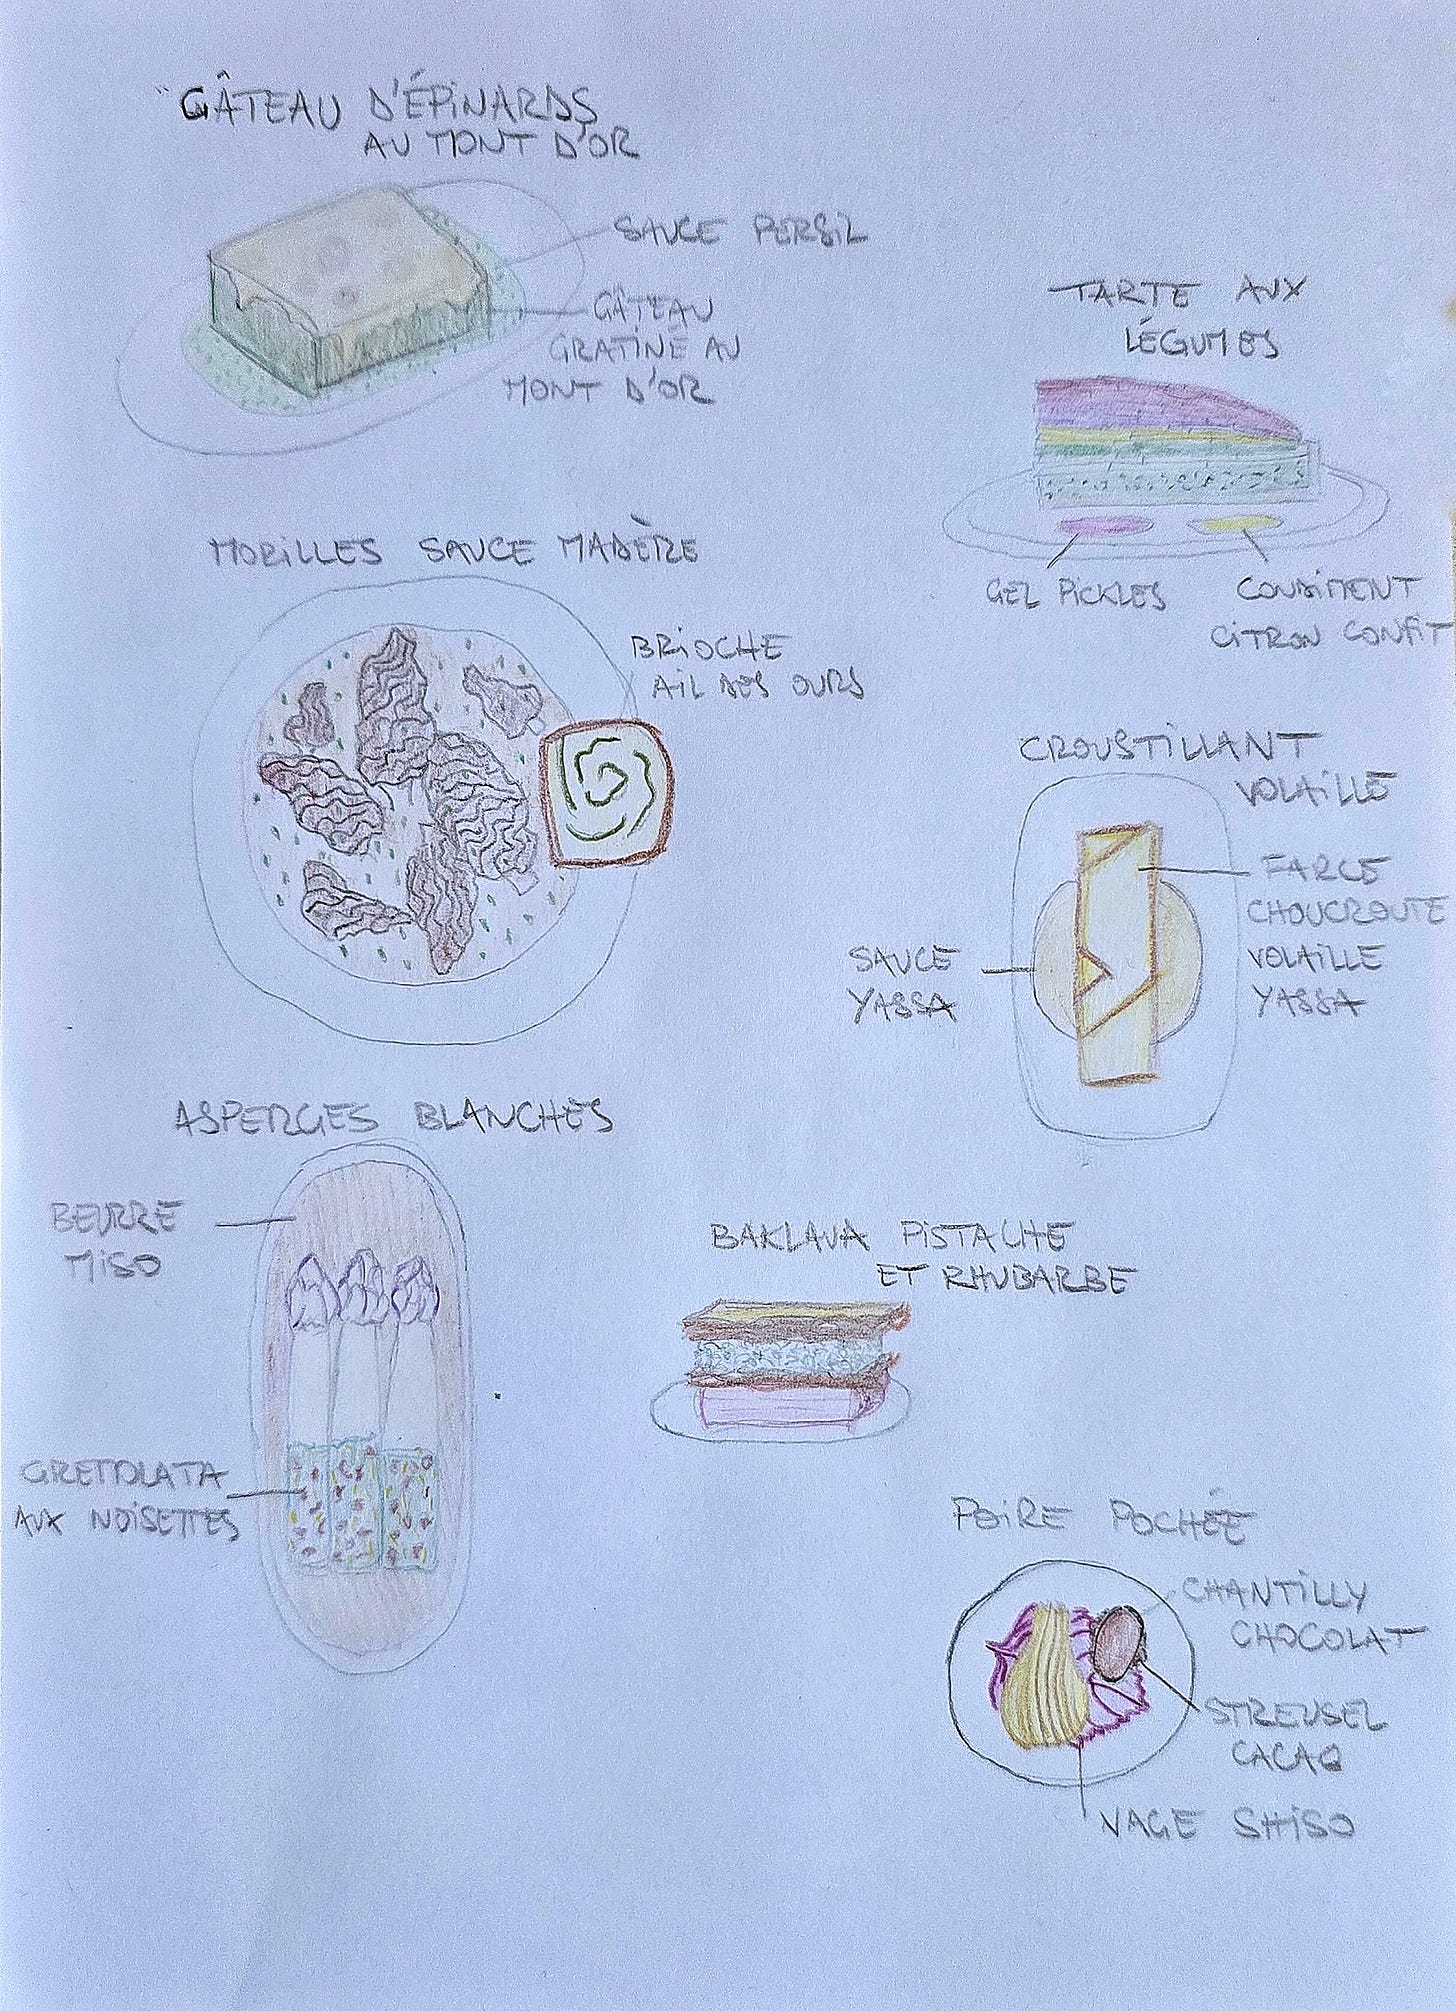 GÂTEAU D'ÉPINARDS
AU MONT D'OR
SAUCE PERSIL
GÂTEAU
GRATINÉ AU
MONT D'OR
TARTE AUX
LÉGUMES
GEL PICKLES
CONDIMENT
CITRON CONFIT
MORILLES SAUCE MADÈRE
BRIOCHE
AIL DES OURS
CROUSTILLANT
VOLAILLE
FARCE
CHOUCROUTE
VOLAILLE
YASSA
SAUCE
YASSA
ASPERGES BLANCHES
BEURRE
MISO
GREMOLATA
AUX NOISETTES
BAKLAVA PISTACHE
ET RHUBARBE
POIRE POCHÉE
CHANTILLY
CHOCOLAT
STREUSEL
CACAO
NAGE SHISO